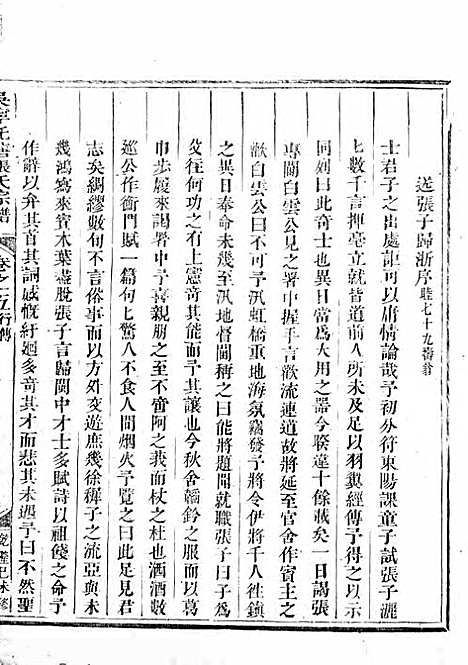 送張子歸浙序 時七十九壽翁
士君子之出處詎可以庸情論哉予初分符東陽課童子試張子灑
七數千言揮毫立就皆道前人所未及足以羽翼經傳予得之以示
同列曰此奇士也異日當爲大市之器今睽違十餘載矣一日謁張
專閫白雲公見之署中握手言歡流連道故將延至官舍作賓主之
歡白雲公曰不可汛虹橋重地海氛竊發予將令伊將千人往鎮
之異日奉命未幾至汎地督閫稱之曰能將題聞就職張子曰子爲
父往何功之有上憲奇其能而予奇其讓也今秋舍韜鈐之服而以葛
巾步履來謁署中予不勝之至不啻阿之莪而杖之杜也酒酒數
巡公作衡門賦一篇句七驚人不食人間烟火予覽之曰此足見君
志矣綢繆數日作俗事以方外交遊庶幾徐穉子之流亞與未
幾鴻寫來賓木葉盡脫張子言歸閩中才士多賦詩以祖餞之命予
作辭以弁其首其詞誠慨紆廻多奇其才而悲其未遇予曰不然聖
吳寧託塘張氏宗譜
卷之一百行傳